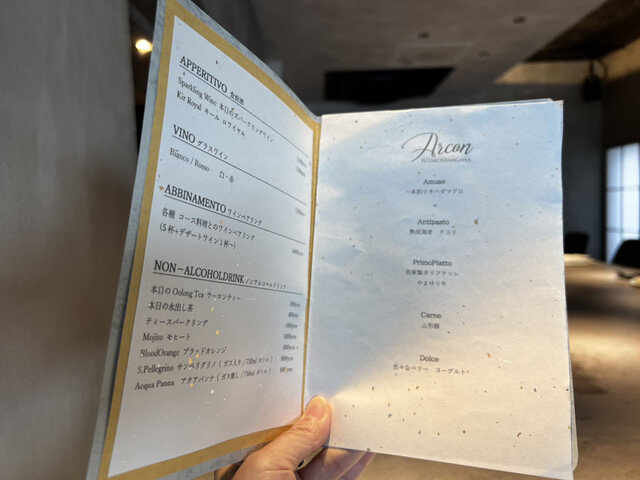 APPERITIVO 食前酒
Sparkling Wine 本日のスパークリングワイン
Kir Royal キール ロワイヤル
VINO グラスワイン
Bianco / Rosso 白・赤
ABBINAMENTO ワインペアリング
各種 コース料理とのワインペアリング
(5杯+デザートワイン1杯〜)
NON−ALCOHOLDRINK ノンアルコールドリンク
本日のOolong Tea ウーロンティー
本日の水出し茶
ティースパークリング
Mojito モヒート
BloodOrange ブラッドオレンジ
S.Pellegrino サンペリグリノ ( ガス入り / 750ml ボトル )
Acqua Panna アクアパンナ ( ガス無し / 750ml ボトル )
Arcon
Amuse
一本釣りキハダマグロ
Antipasto
熟成海老 チコリ
PrimoPiatto
自家製タリアテッレ
やまゆり牛
Carne
山形豚
Dolce
色々なベリー ヨーグルト